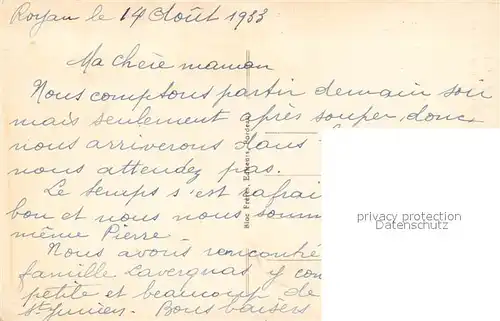 Royan le 14 Août 1933
Ma chère maman
Nous comptons partir demain soir
mais seulement après souper, donc
nous arriverons dans
nous attendez pas.
Le temps s'est rafrai
bon et nous nous somm
même Pierre.
Nous avons rencontré
famille Lavergnas y com
petite et beaucoup de
St-Junien. Bons baisers
Bloc Frères, Editeurs, Bordeaux
privacy protection
Datenschutz